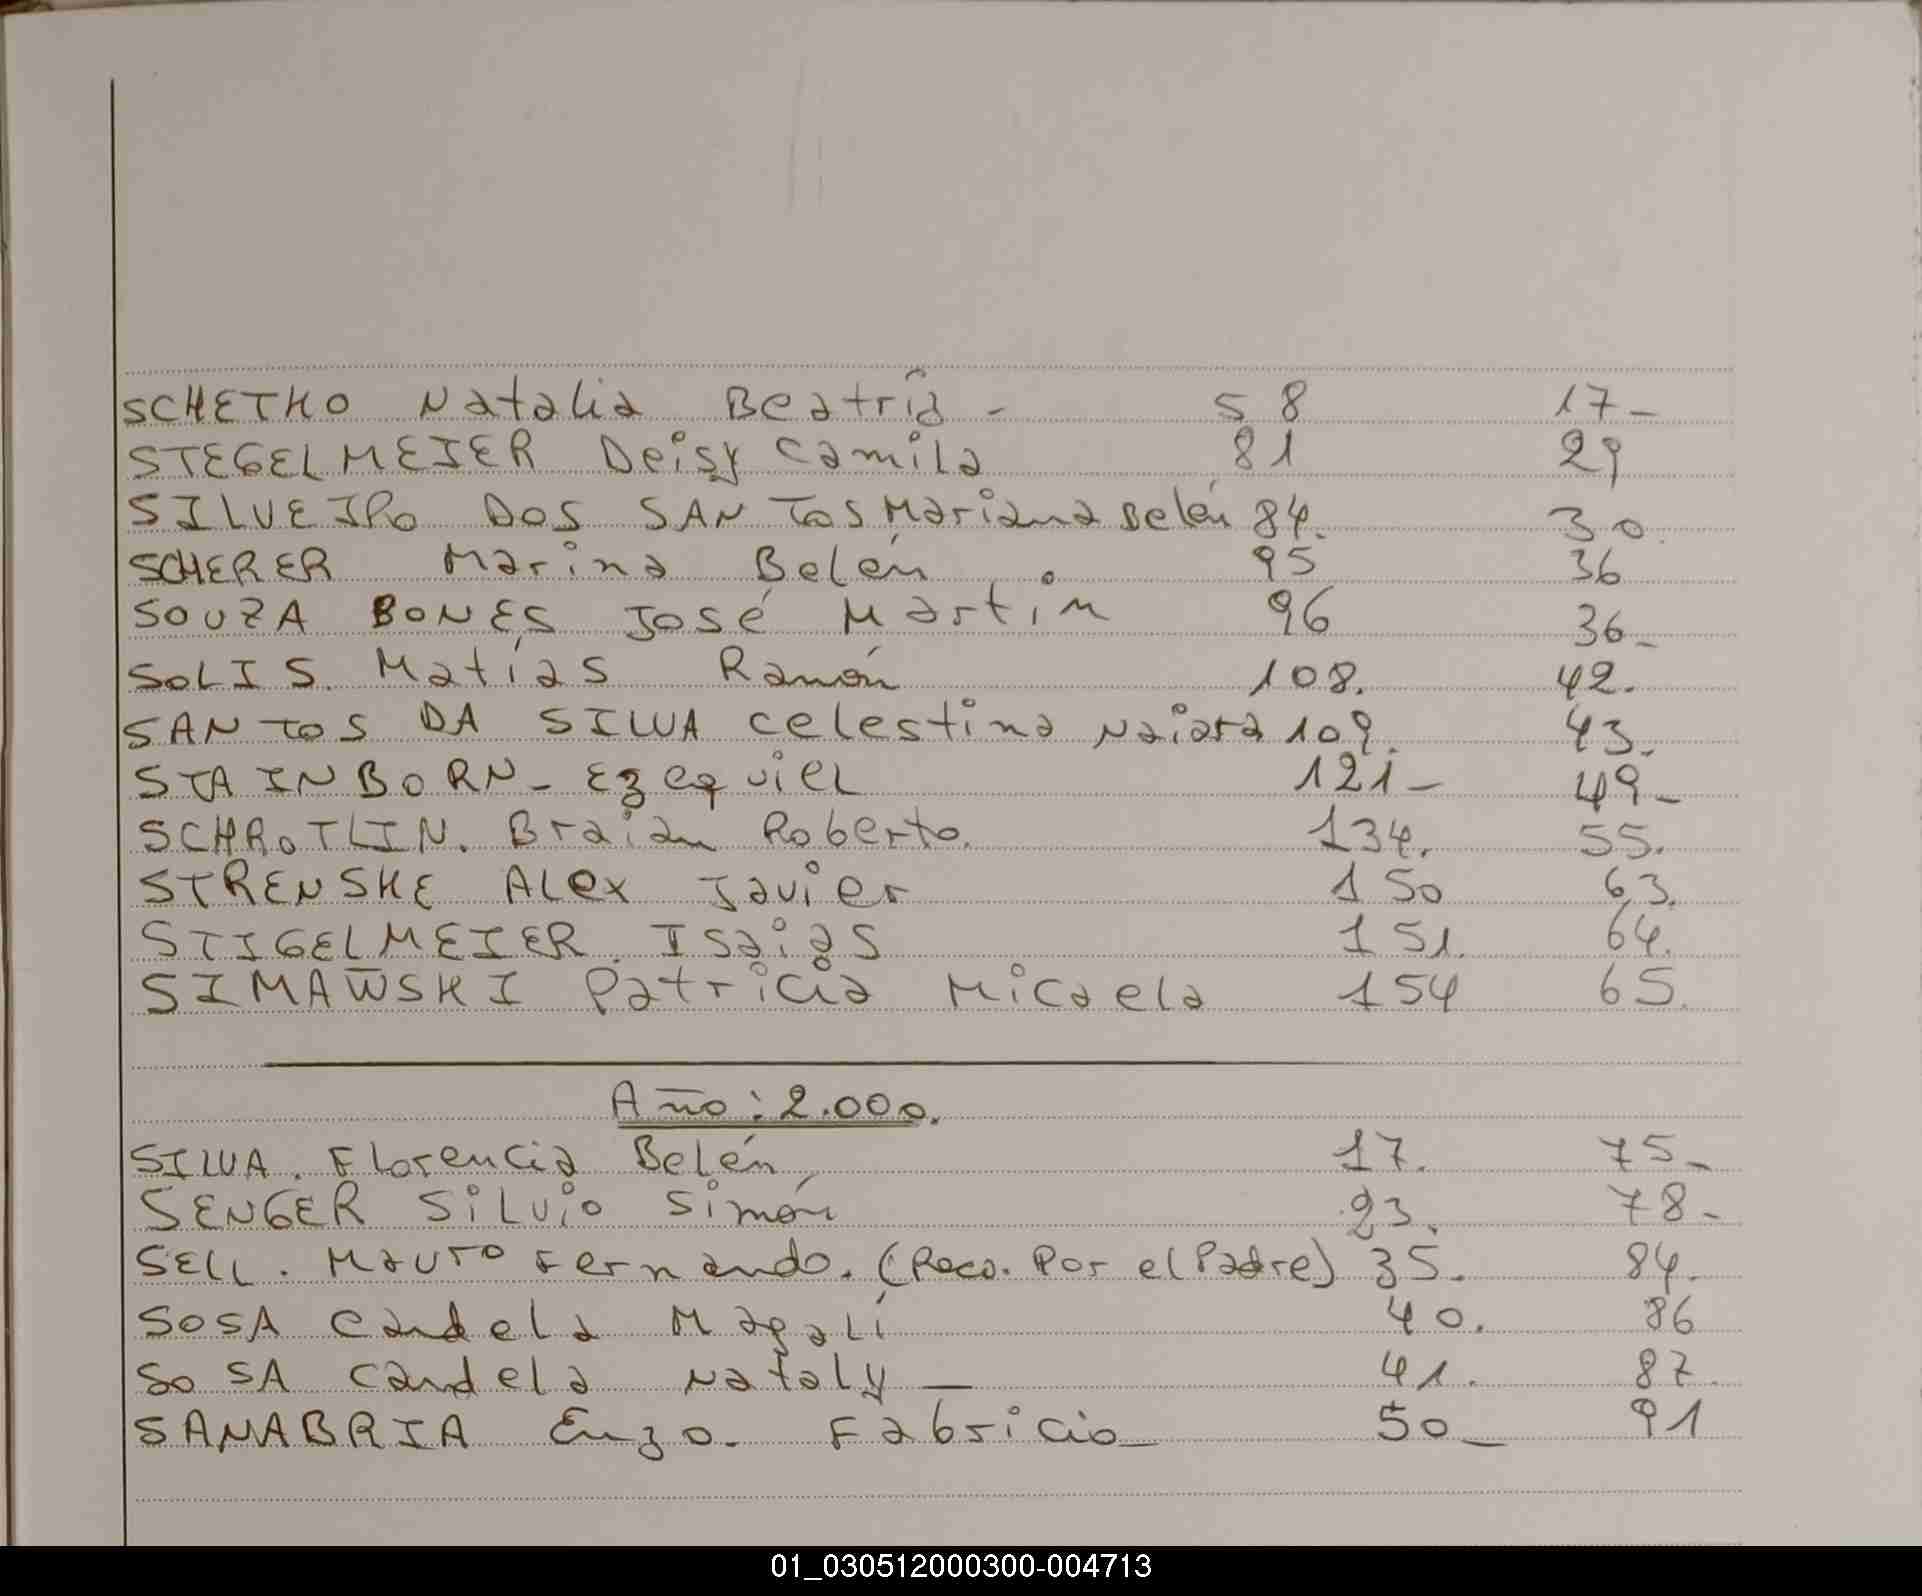 SCHETKO Natalia Beatriz - 58 17-
STEGELMEIER Deisy Camila 81 29
SILVEIRO DOS SANTOS Mariana Belén 84. 30.
SCHERER Marina Belén 95 36
SOUZA BONES José Martín 96 36-
SOLIS. Matías Ramón 108. 42.
SANTOS DA SILVA Celestina Naiara 109. 43.
STAINBORN- Ezequiel 121- 49-
SCHROTLIN. Braian Roberto. 134. 55.
STRENSKE Alex Javier 150 63.
STIGELMEIER. Isaias 151. 64.
SIMAWSKI Patricia Micaela 154 65.
Año: 2.000.
SILVA. Florencia Belén 17. 75-
SENGER Silvio Simón 23. 78-
SELL. Mauro Fernando. (Reco. Por el Padre) 35. 84.
SOSA Candela Magalí 40. 86
SOSA Candela Nataly - 41. 87.
SANABRIA Enzo. Fabricio- 50- 91
01_030512000300-004713